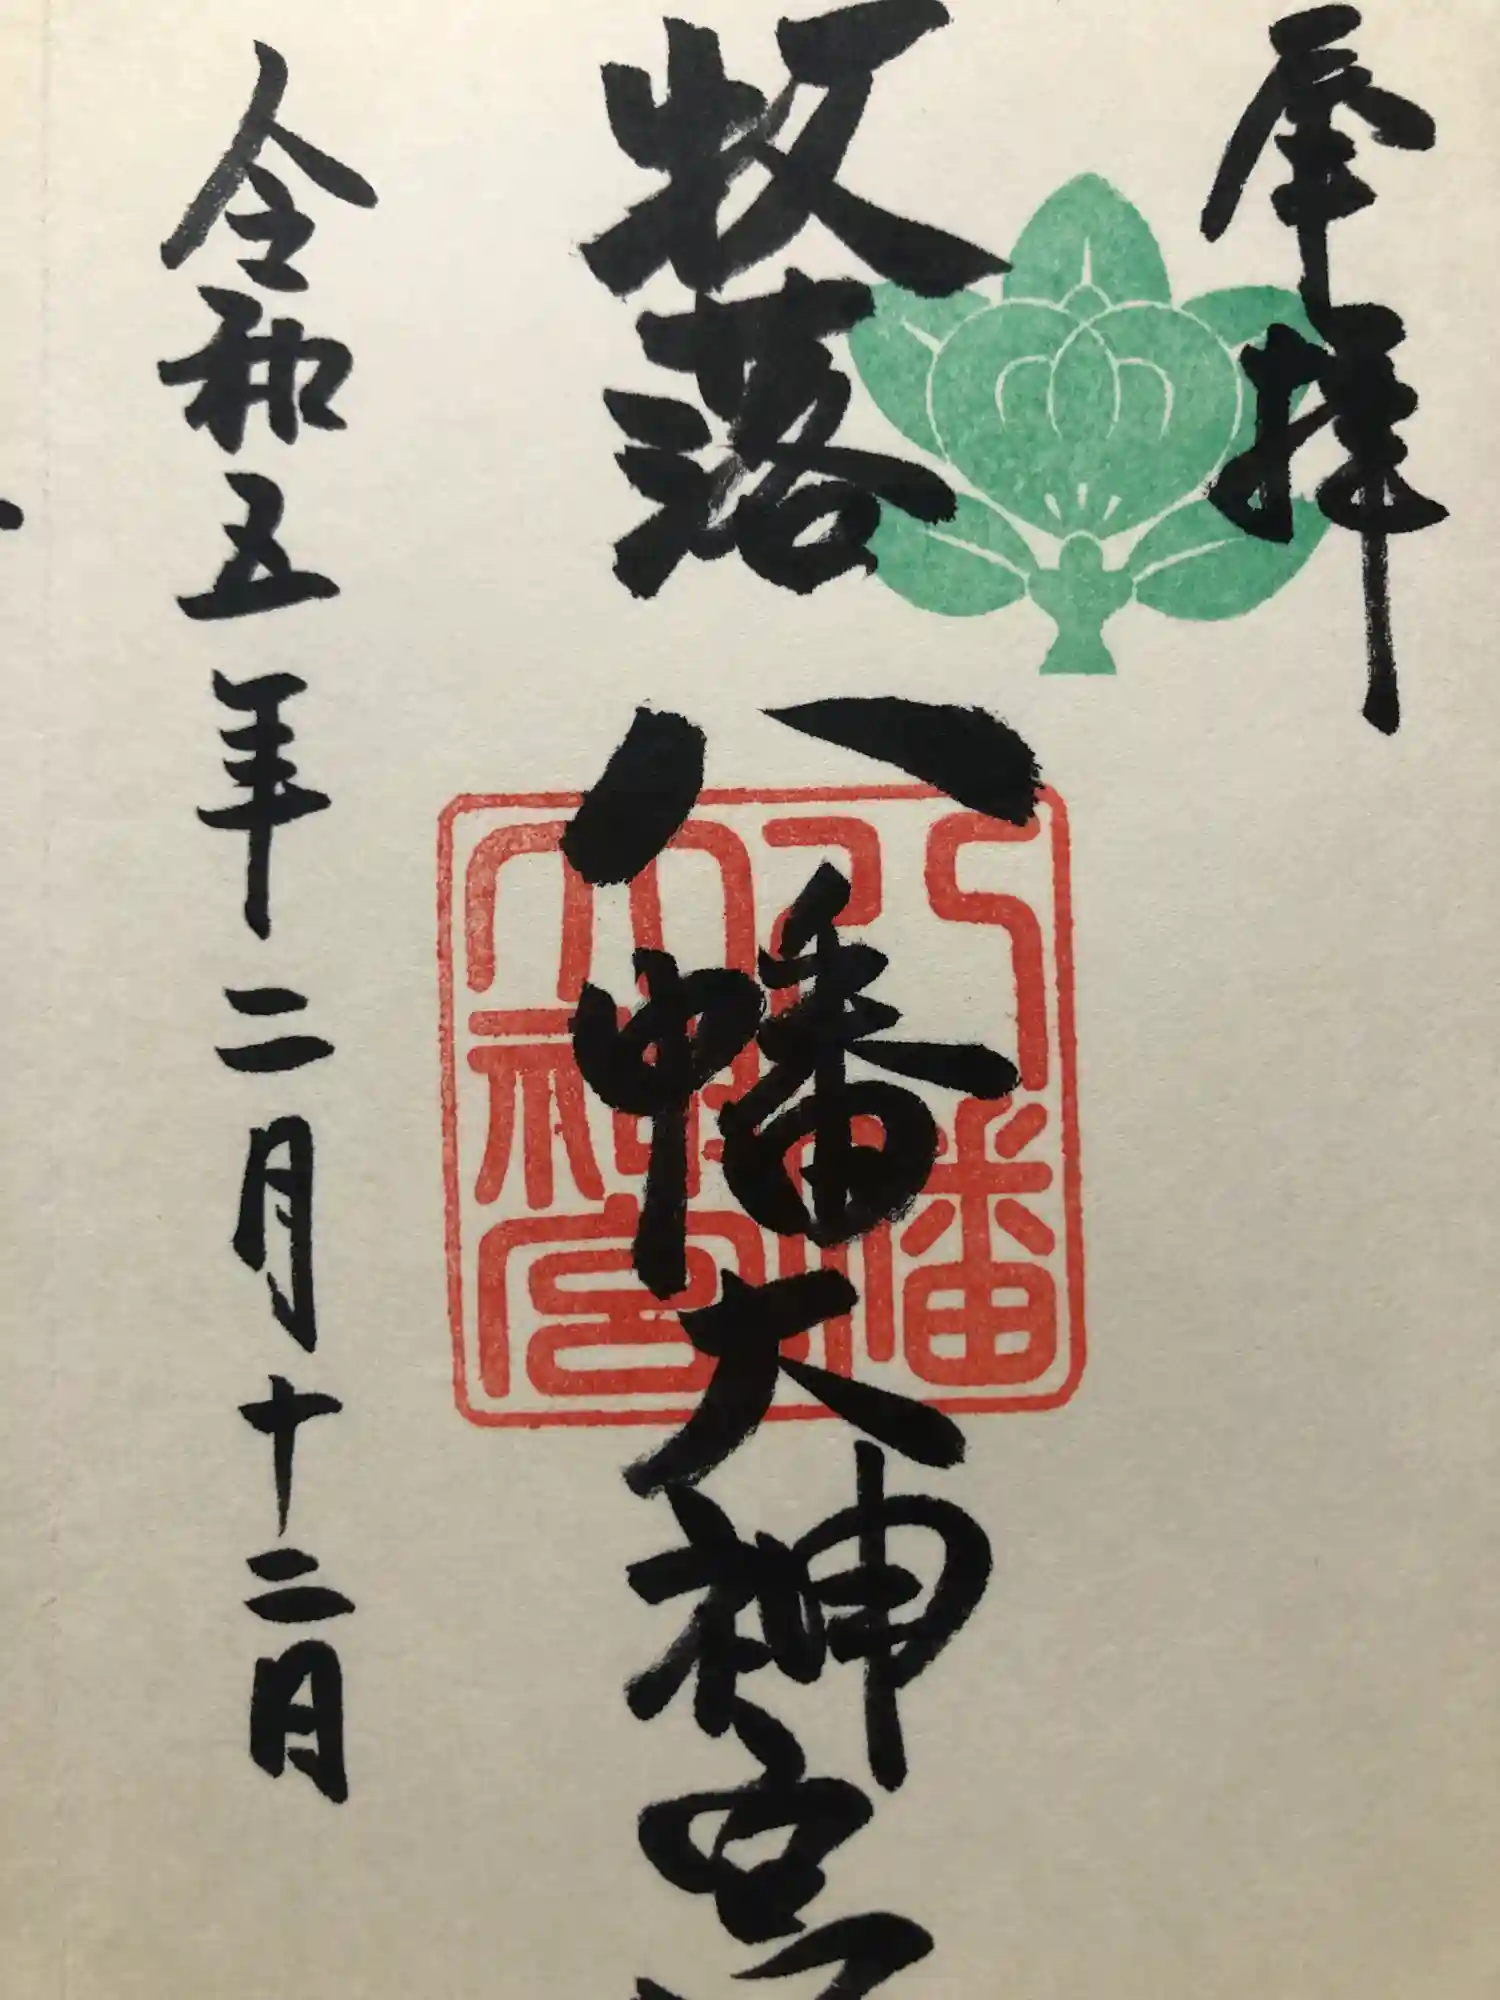 奉拝
牧落八幡大神宮
八幡
大神宮
令和五年二月十二日